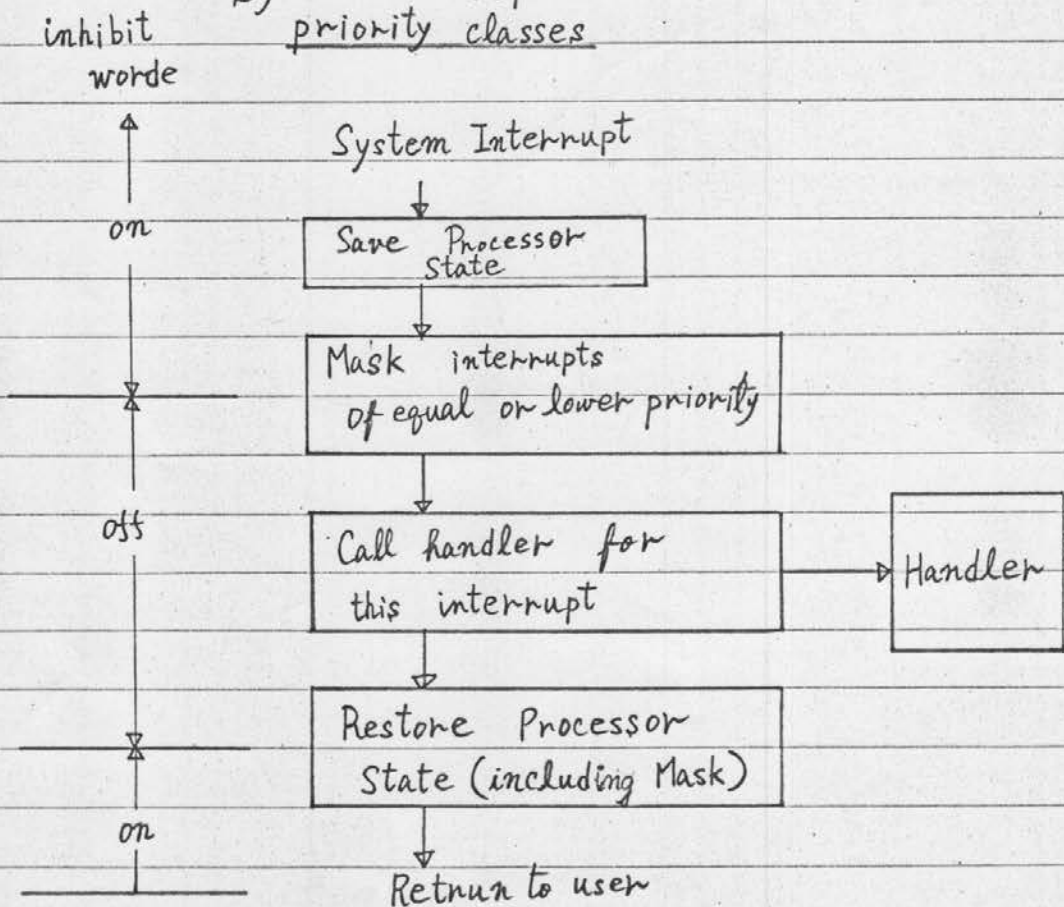 inhibit
worde
priority classes
System Interrupt
on
Save Processor
State
Mask interrupts
of equal or lower priority
off
Call handler for
this interrupt
Handler
Restore Processor
State (including Mask)
on
Retnun to user